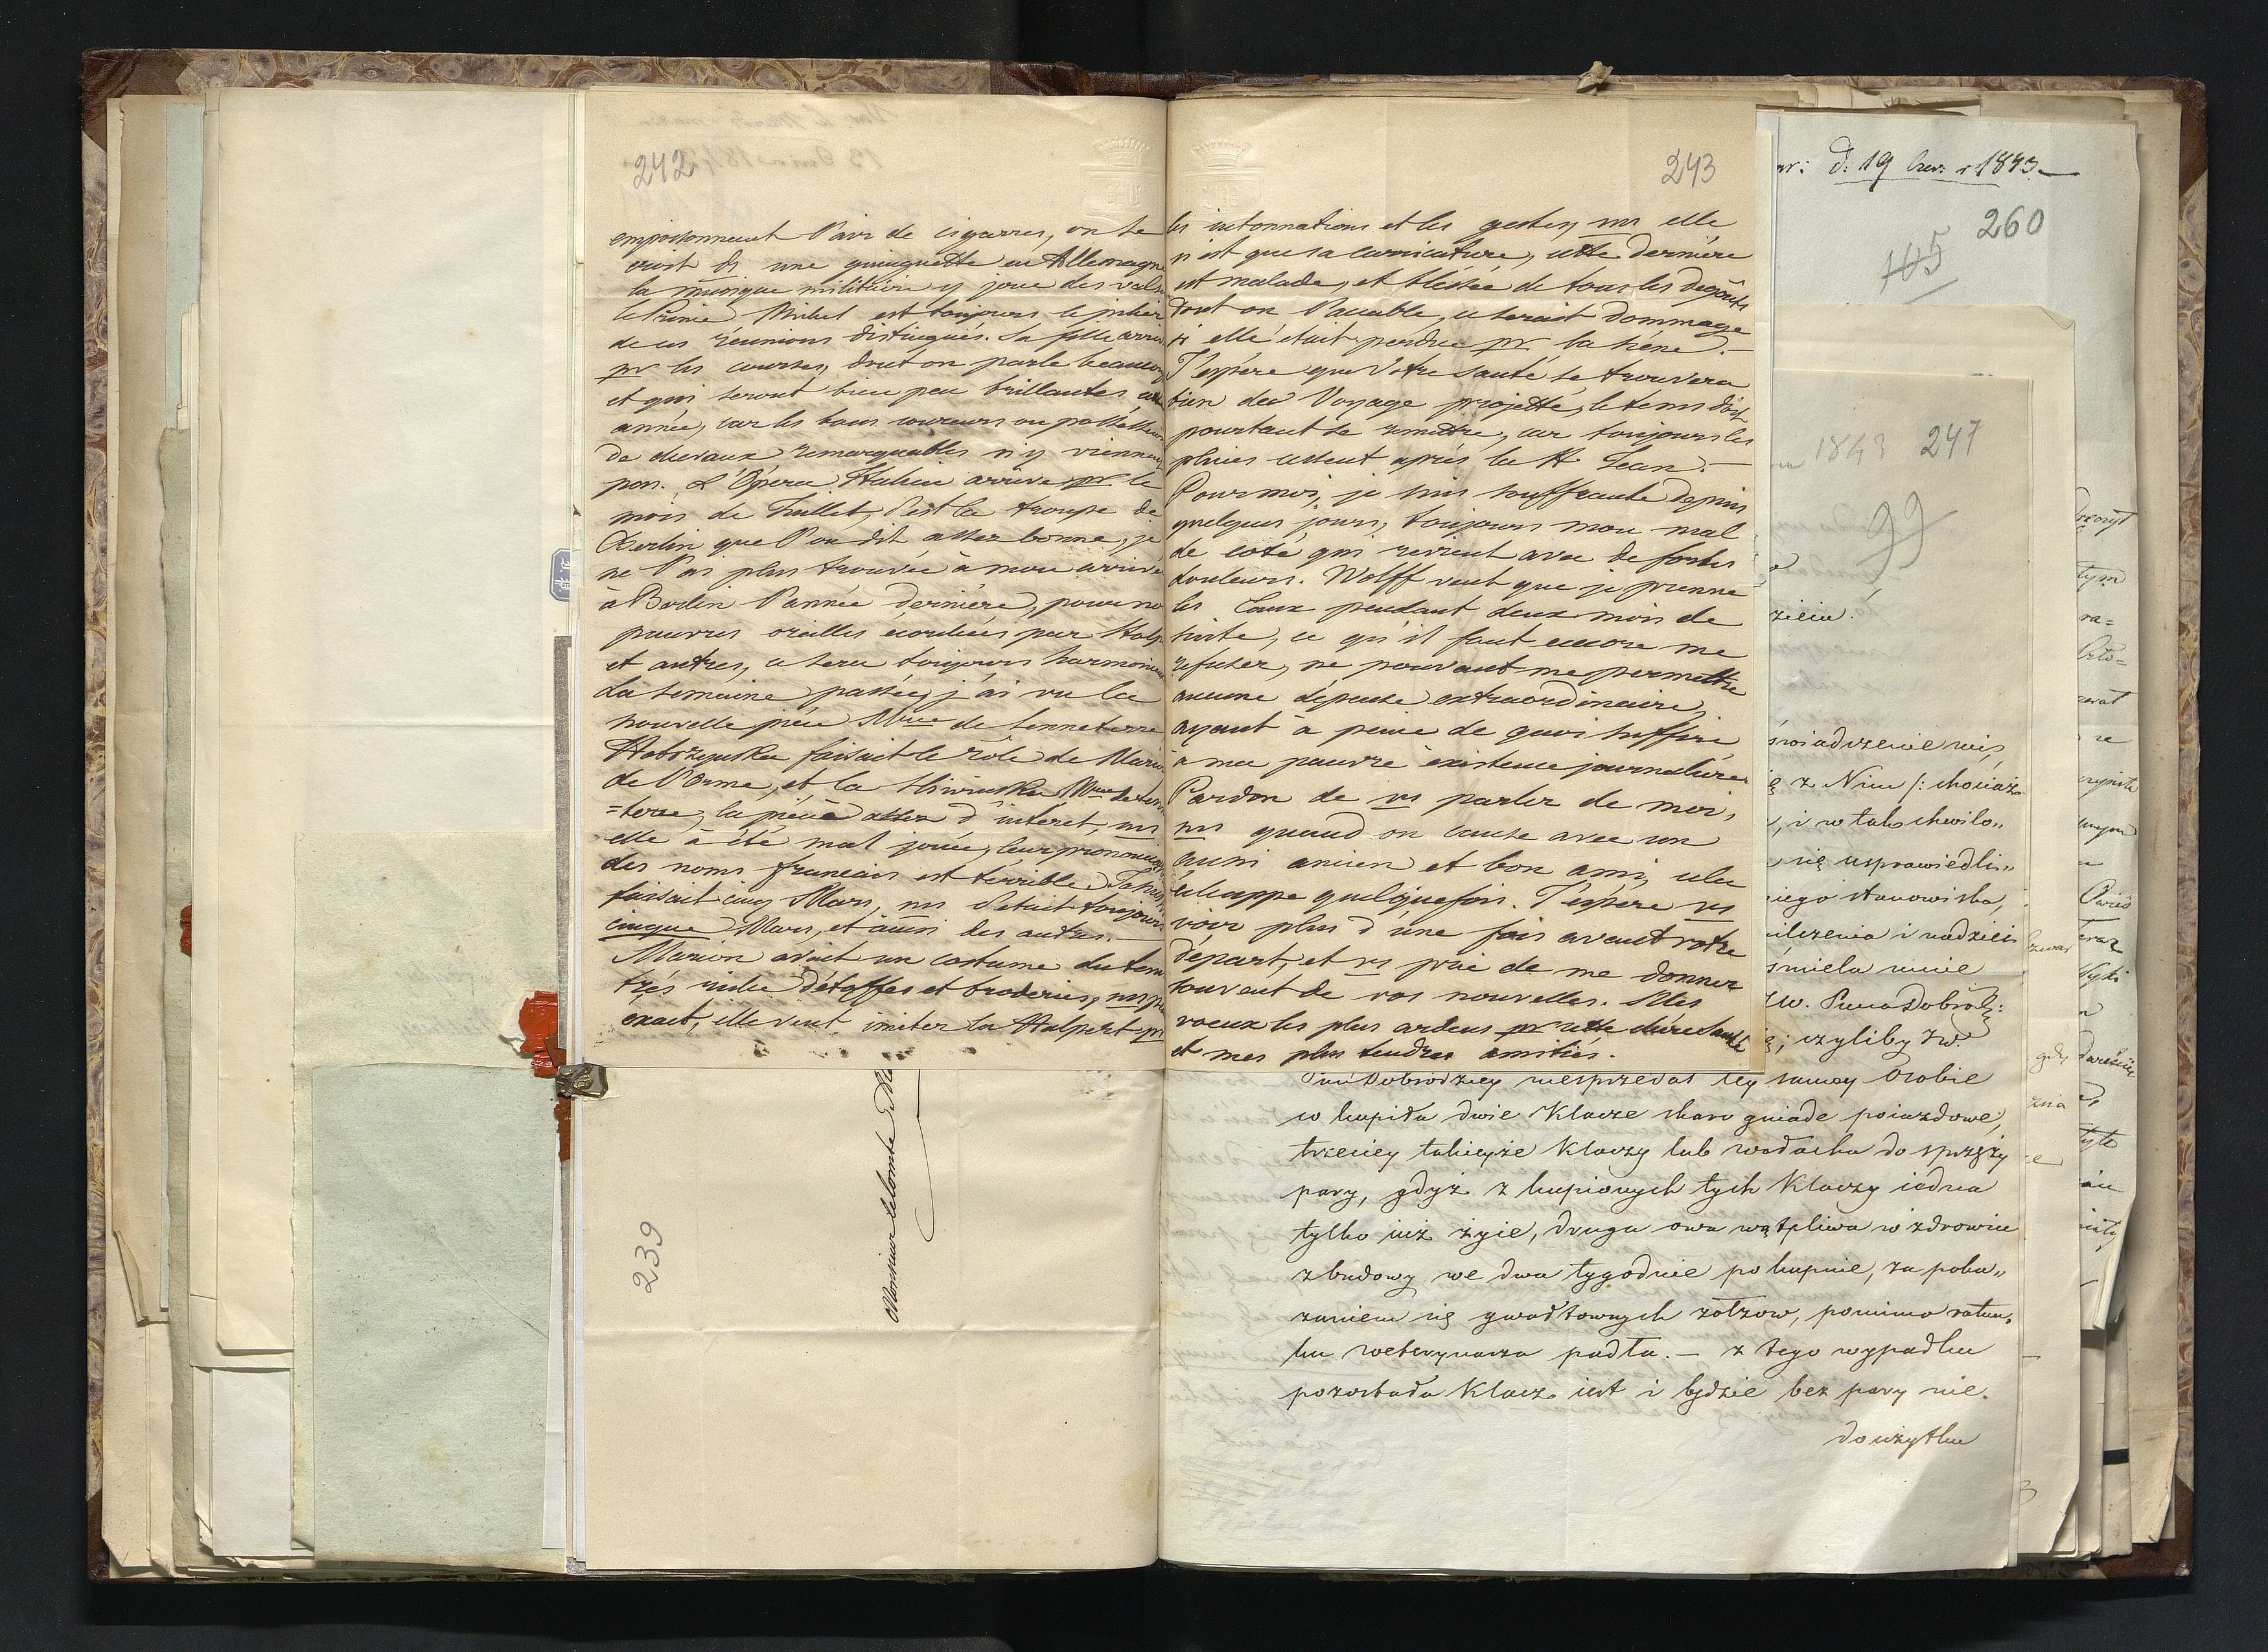 242
empoisonnent l'air de cigarres, on se
croit ds une guinguette en Allemagne
la musique militaire y joue des valses
le Prince Michel est toujours le pilier
de ces réunions distingués. Sa fille arrive
pr les courses, dont on parle beaucoup
et qui seront bien peu brillantes cette
année, car les bons coureurs ou possesseurs
de chevaux remarquables n'y viennent
pas. L'Opera Italien arrive pr le
mois de Juillet, c'est la troupe de
Berlin que l'on dit assez bonne, je
ne l'ai plus trouvée à mon arrivée
à Berlin l'année dernière, pour nos
pauvres oreilles écorchées par Halp
et autres, ce sera toujours harmonieux
La semaine passée j'ai vu la
nouvelle pièce Mme de Senneterre
faisait le rôle de Marion
de l'Orme, et la Mme de Senne
=terre, la pièce assez d'interet, ms
elle à été mal jouée, leur prononciation
des noms francais est terrible,
faisait cinq Mars, ms c'était toujours
cinque Mars, et ainsi des autres. —
Marion avait un costume du tems
très riche d'étoffes et broderies, ms peu
exact, elle veut imiter la Halpert pr
Monsieur le Comte
239
243
les intonnations et les gestes, ms elle
n'est que sa carricature, cette dernière
est malade, et blessée de tous les dégouts
dont on l'accable, ce serait dommage
si elle était perdue pr la scène. —
J'espère que Votre santé se trouvera
bien du Voyage projetté, le tems doit
pourtant se remettre, car toujours les
pluies cessent après la St Jean. —
Pour moi, je suis souffrante depuis
quelques jours, toujours mon mal
de coté qui revient avec de fortes
douleurs. Wolff veut que je prenne
les Eaux pendant deux mois de
suite, ce qu'il faut encore me
refuser, ne pouvant me permettre
aucune dépense extraordinaire,
ayant à peine de quoi suffire
à ma pauvre éxistence journalière
Pardon de vs parler de moi,
ms quand on cause avec un
aussi ancien et bon ami, cela
échappe quelquefois. J'espère vs
voir plus d'une fois avant votre
départ, et vs prie de me donner
souvent de vos nouvelles. Mes
voeux les plus ardens pr cette chère santé
et mes plus tendres amitiés.
d: 19 Czer: r 1843 —
260
105
1843 247
99
zieiu.
świadczenie mię,
z Nim /: chociaż
, i w tak chwilo„
się usprawiedli„
niego stanowiska,
milczenia i nadziei
śmiela mnie
JW. Pana Dobrodz:
czyliby JW.
Pan Dobrodziey niesprzedał tey samey Osobie
co kupiła dwie Klacze skaro gniade poiazdowe,
trzeciey takieyże Klaczy lub wałacha do sprzęży
pary, gdyż z kupionych tych Klaczy iedna
tylko iuż żyie, druga owa wątpliwa w zdrowiu
z budowy we dwa tygodnie po kupnie, za poka„
zaniem się gwałtownych zołzow, pomimo ratun„
ku weterynarza padła. — z tego wypadku
pozostała Klacz iest i będzie bez pary nie.
do użytku